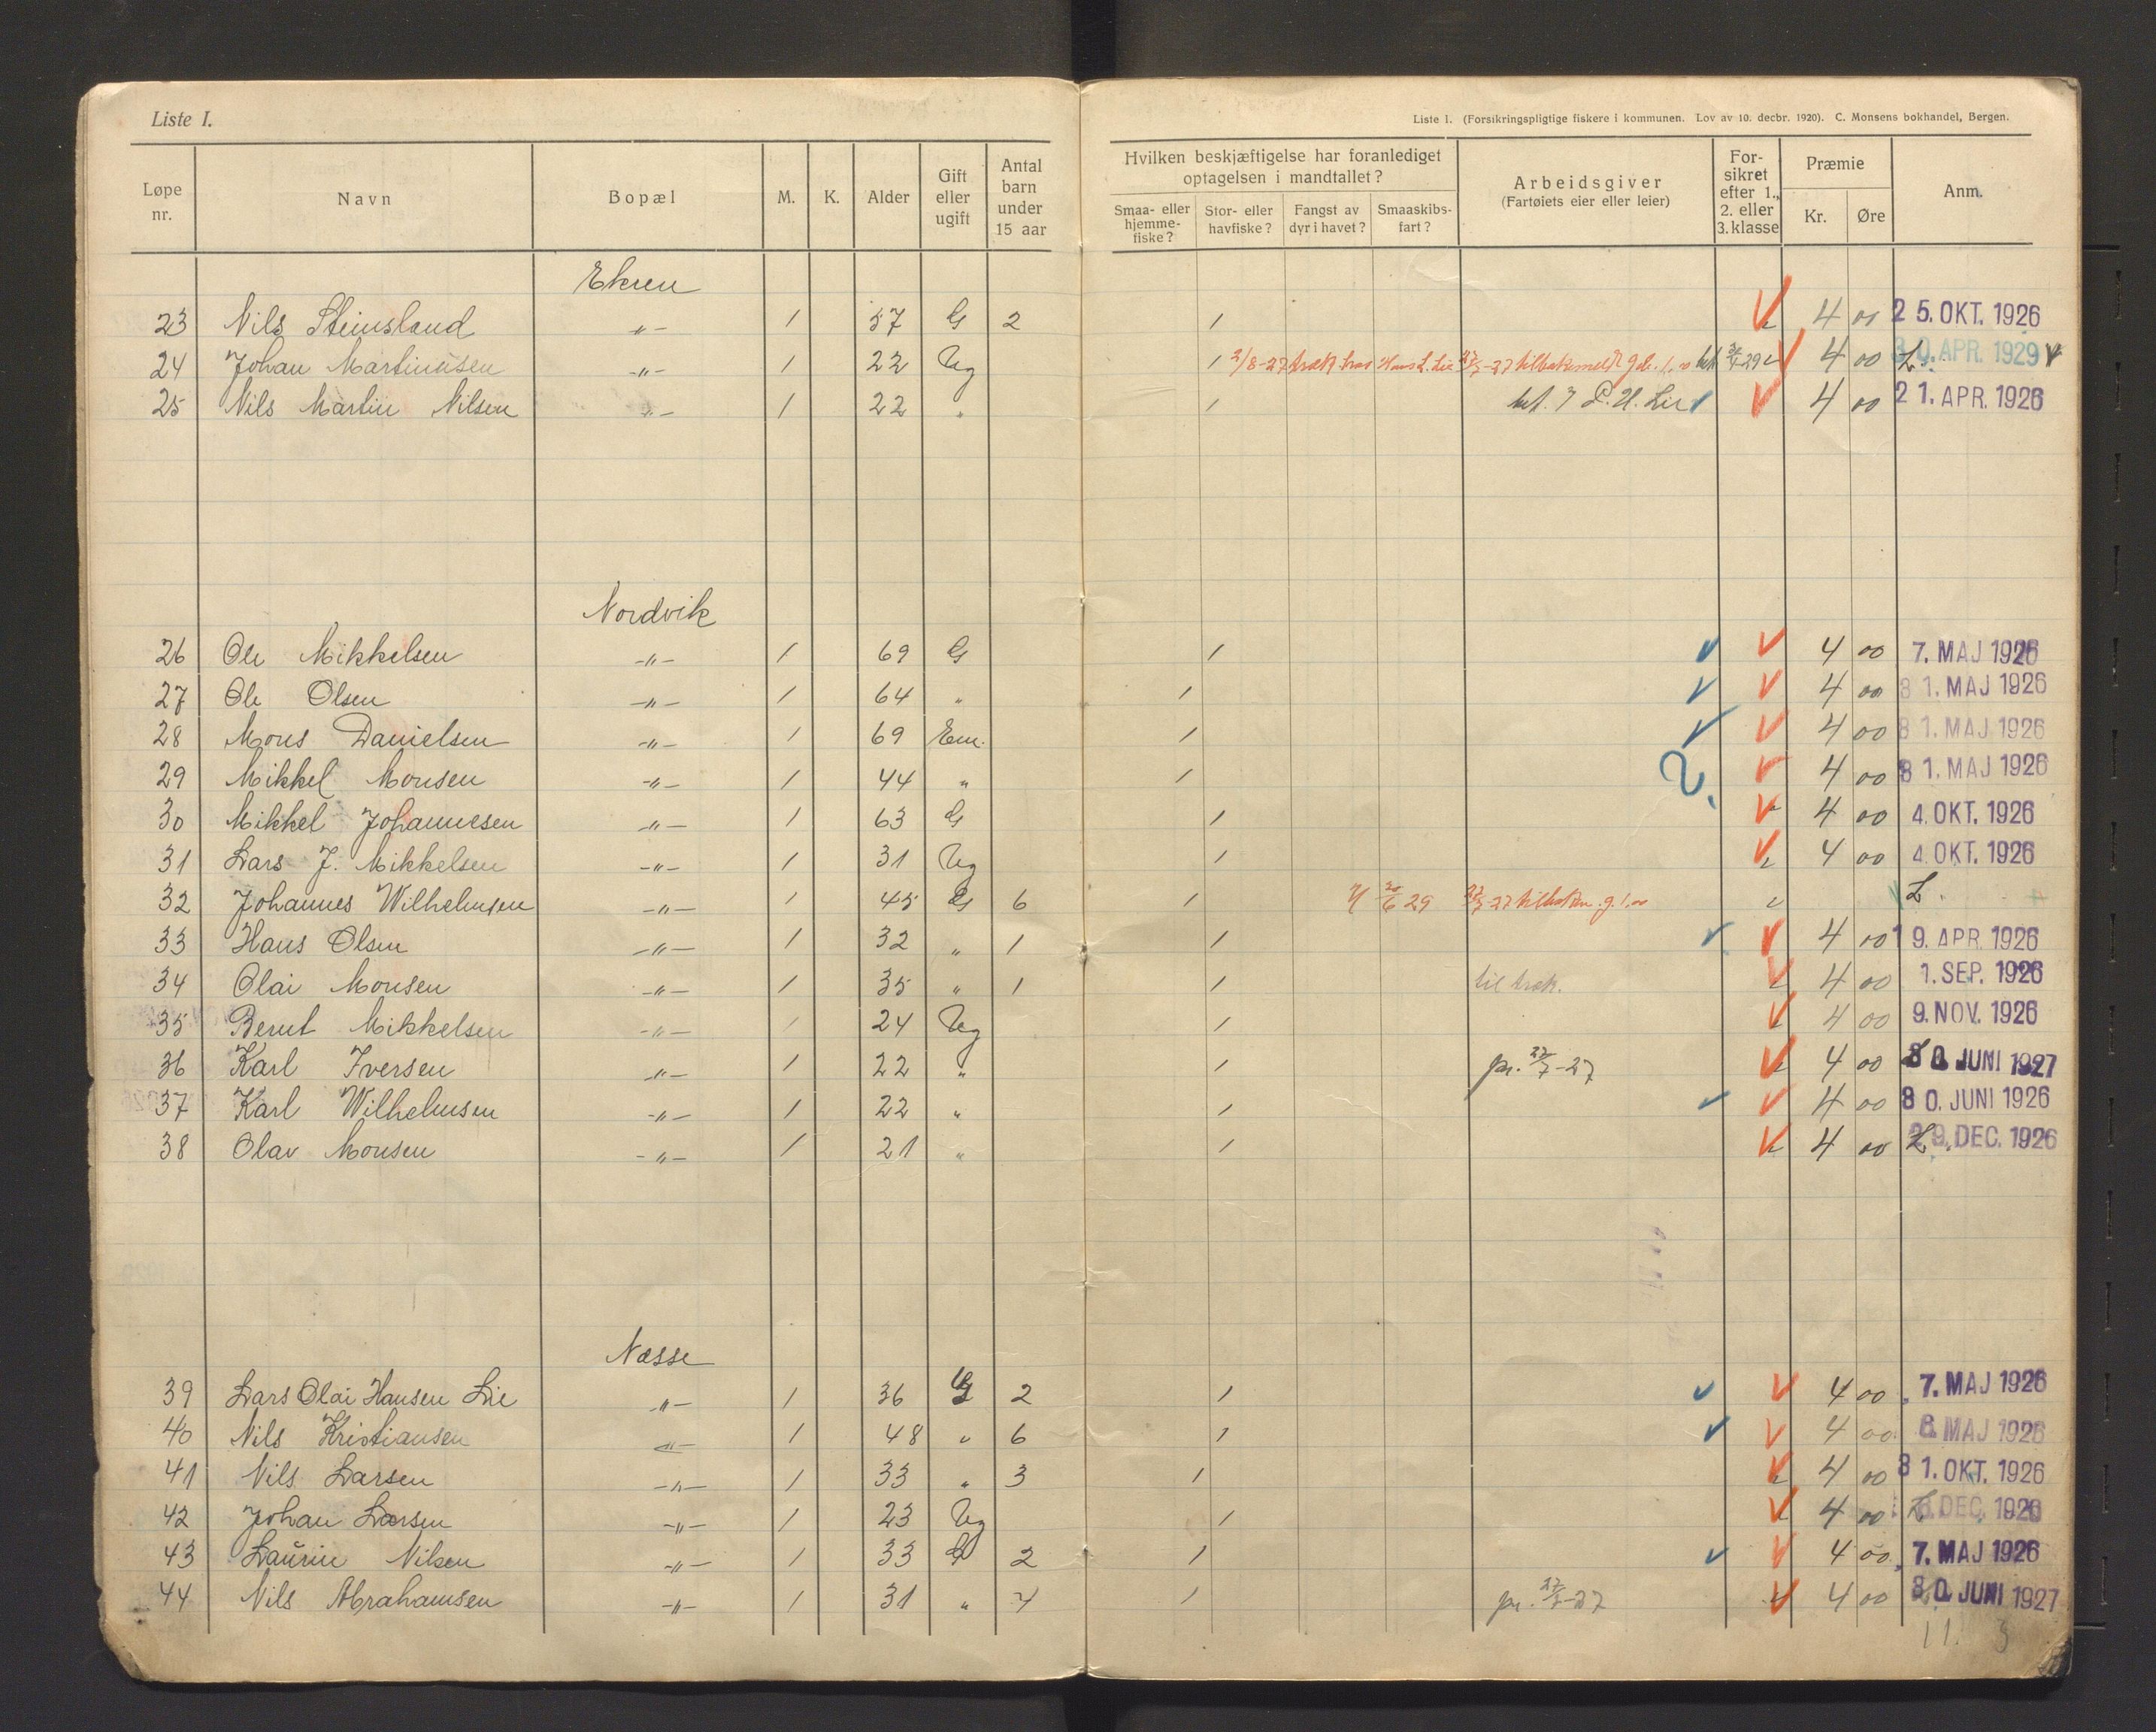 Liste I.
Liste I. (Forsikringspligtige fiskere i kommunen. Lov av 10. decbr. 1920). C. Monsens bokhandel, Bergen.
Løpe nr. Navn Bopæl M. K. Alder Gift eller ugift Antal barn under 15 aar Hvilken beskjæftigelse har foranlediget optagelsen i mandtallet? Smaa- eller hjemme-fiske? Stor- eller havfiske? Fangst av dyr i havet? Smaaskibs-fart? Arbeidsgiver (Fartøiets eier eller leier) For-sikret efter 1., 2. eller 3. klasse Præmie Kr. Øre Anm.
Ekren
23 Nils Steinsland -"- 1 57 G 2 1 4 00 25. OKT. 1926
24 Johan Martinusen -"- 1 22 Ug 1 2/8-27 Hans L. Lie 4 00 L. 30. APR. 1929
25 Nils Martin Nilsen -"- 1 22 " 1 bet. L. H. Lie 4 00 21. APR. 1926
Nordvik
26 Ole Mikkelsen -"- 1 69 G 1 4 00 7. MAJ 1926
27 Ole Olsen -"- 1 64 " 1 4 00 31. MAJ 1926
28 Mons Danielsen -"- 1 69 Em. 1 4 00 31. MAJ 1926
29 Mikkel Monsen -"- 1 44 " 1 ? 4 00 31. MAJ 1926
30 Mikkel Johannesen -"- 1 63 G 1 4 00 4. OKT. 1926
31 Lars J. Mikkelsen -"- 1 31 Ug 1 4 00 4. OKT. 1926
32 Johannes Wilhelmsen -"- 1 45 G 6 1 L.
33 Hans Olsen -"- 1 32 " 1 1 4 00 19. APR. 1926
34 Olai Monsen -"- 1 35 " 1 1 til træk. 4 00 1. SEP. 1926
35 Bernt Mikkelsen -"- 1 24 Ug 1 4 00 9. NOV. 1926
36 Karl Iversen -"- 1 22 " 1 pr. 27/7-27 4 00 30. JUNI 1927
37 Karl Wilhelmsen -"- 1 22 " 1 4 00 30. JUNI 1926
38 Olav Monsen -"- 1 21 " 1 4 00 L. 29. DEC. 1926
Næsse
39 Lars Olai Hansen Lie -"- 1 36 G 2 1 4 00 7. MAJ 1926
40 Nils Kristiansen -"- 1 48 " 6 1 4 00 6. MAJ 1926
41 Nils Larsen -"- 1 33 " 3 1 4 00 31. OKT. 1926
42 Johan Larsen -"- 1 23 Ug 1 4 00 L. DEC. 1926
43 Laurin Nilsen -"- 1 33 G 2 1 4 00 7. MAJ 1926
44 Nils Abrahamsen -"- 1 31 " 4 1 pr. 27/7-27 4 00 30. JUNI 1927
11. 3